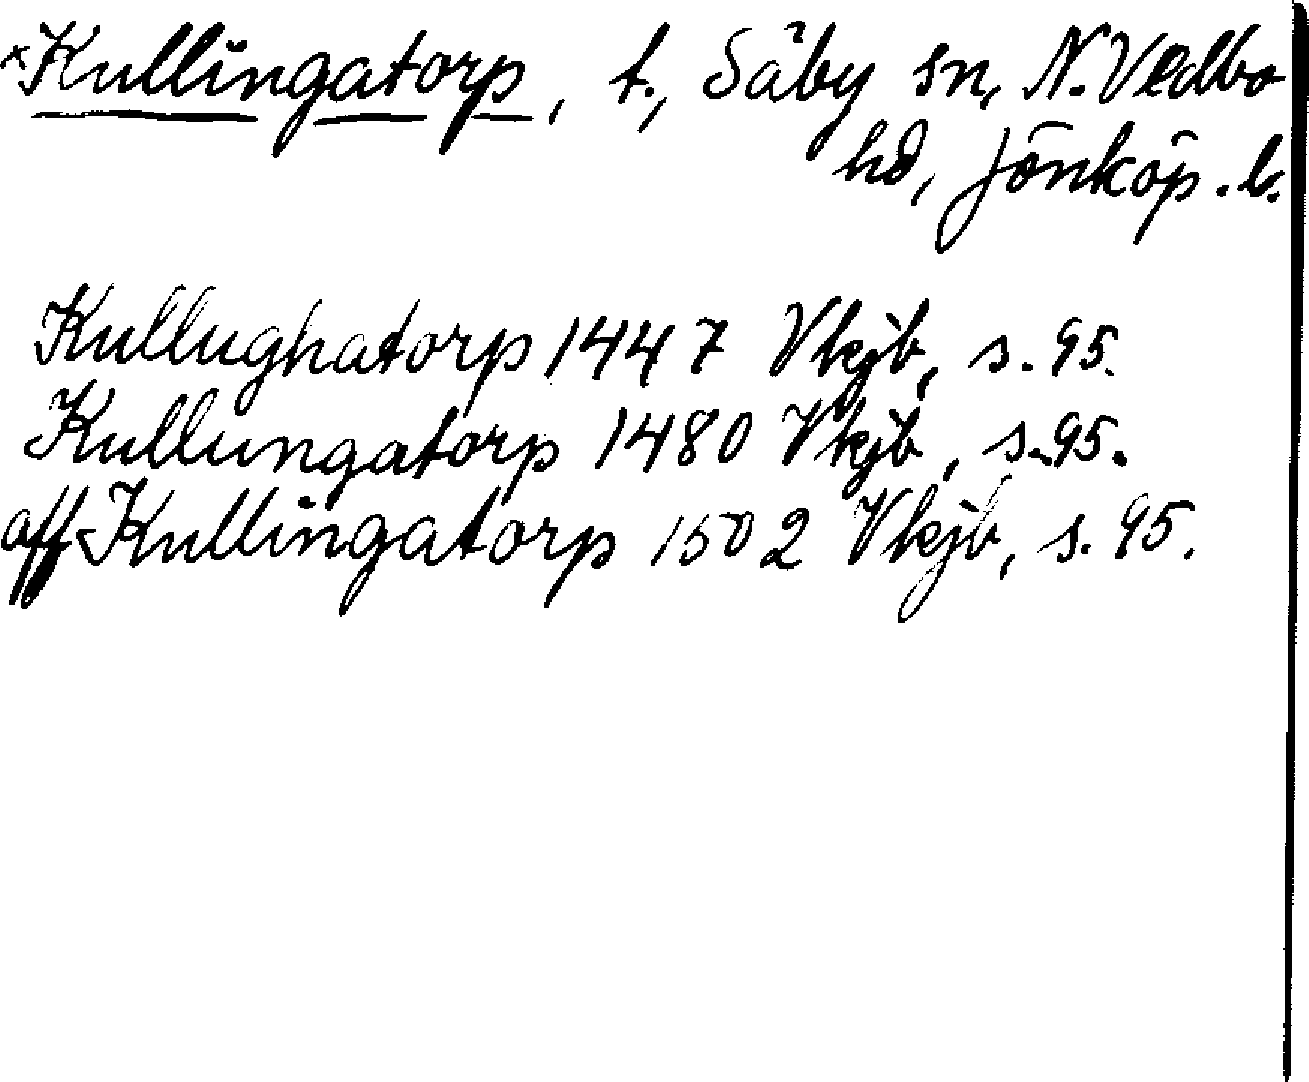 ×Kullingatorp, t., Säby sn, N. Vedbo
hd, Jönköp. l.
Kullughatorp 1447 Vkjb, s. 95.
Kullungatorp 1480 Vkjb, s. 95.
aff Kullingatorp 1502 Vkjb, s. 95.